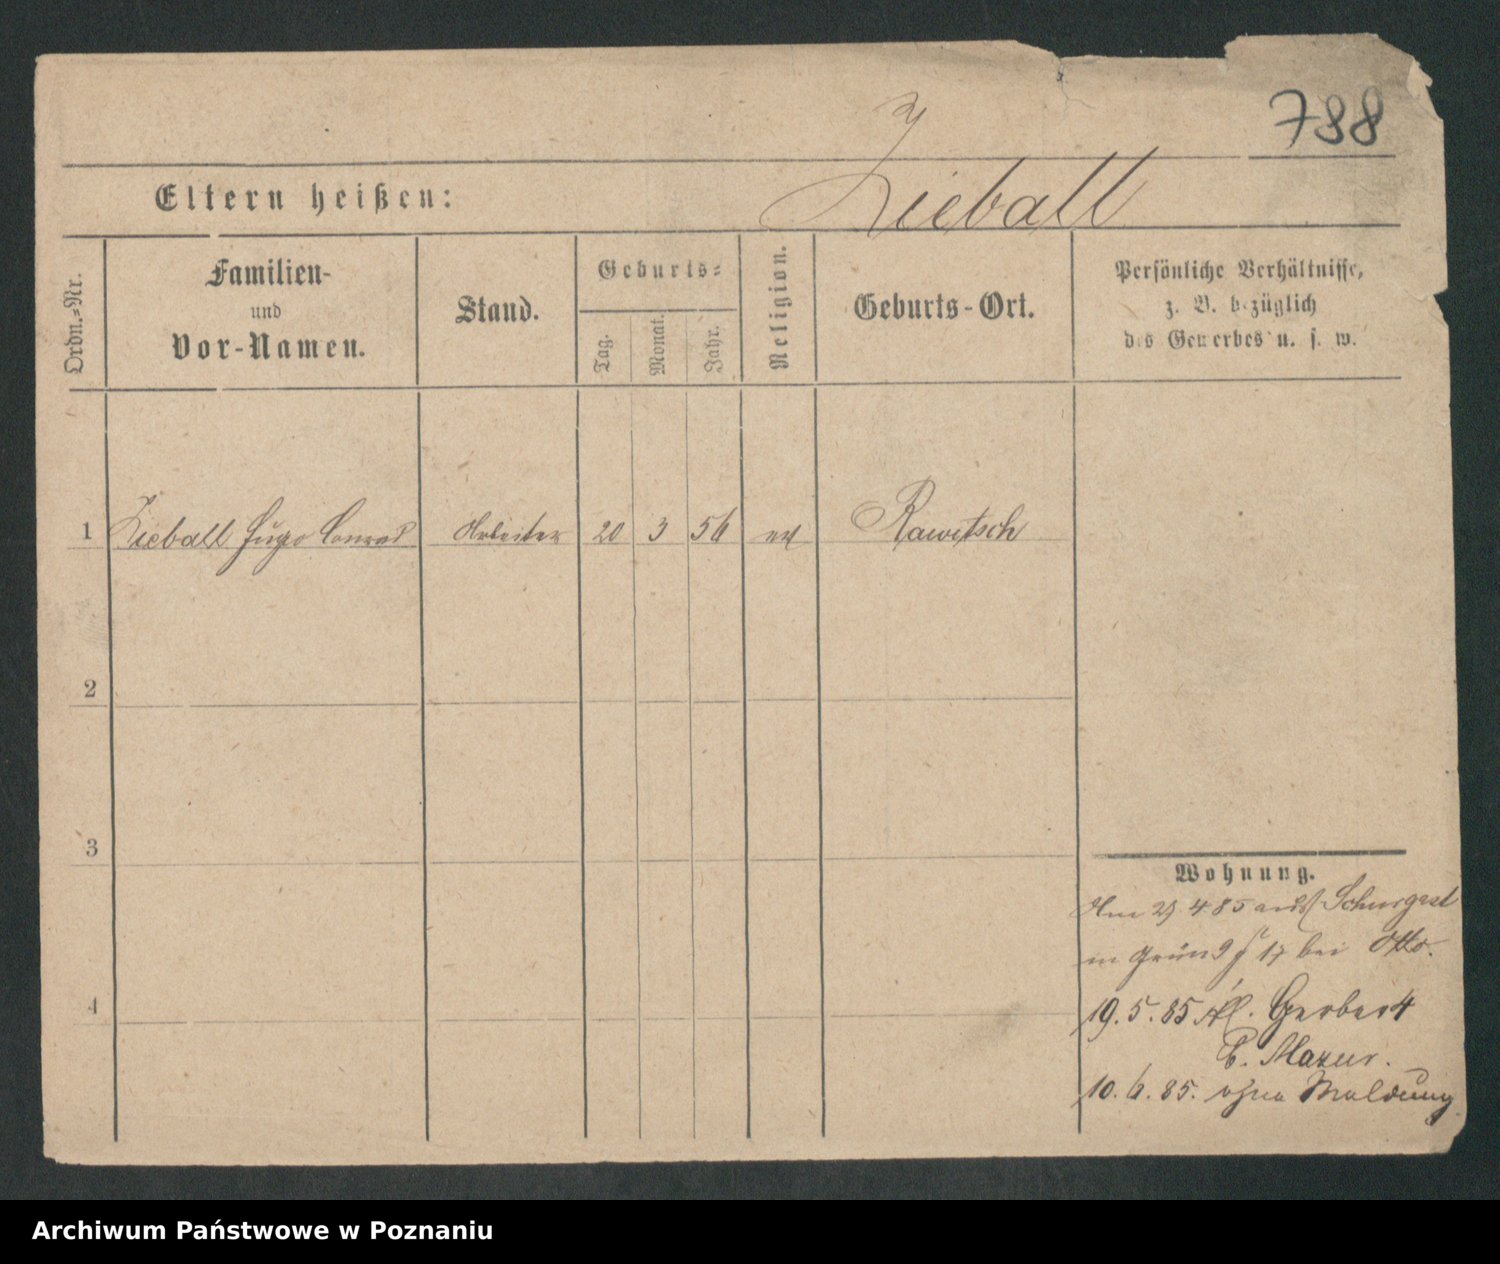 788
Eltern heißen: Zieball
Ordn.-Nr.
Familien-
und
Vor-Namen.
Stand.
Geburts-
Tag.
Monat.
Jahr.
Religion.
Geburts-Ort.
Persönliche Verhältnisse,
z. B. bezüglich
des Gewerbes u. s. w.
1 Zieball Hugo Conrad Arbeiter 20 3 56 ev Rawitsch
2
3
4
Wohnung.
Am 29 4 85 aus Schurgast
in 17 bei Otto.
19.5.85 Gerber 4
b. Mazur.
10.6.85. ohne Meldung
Archiwum Państwowe w Poznaniu